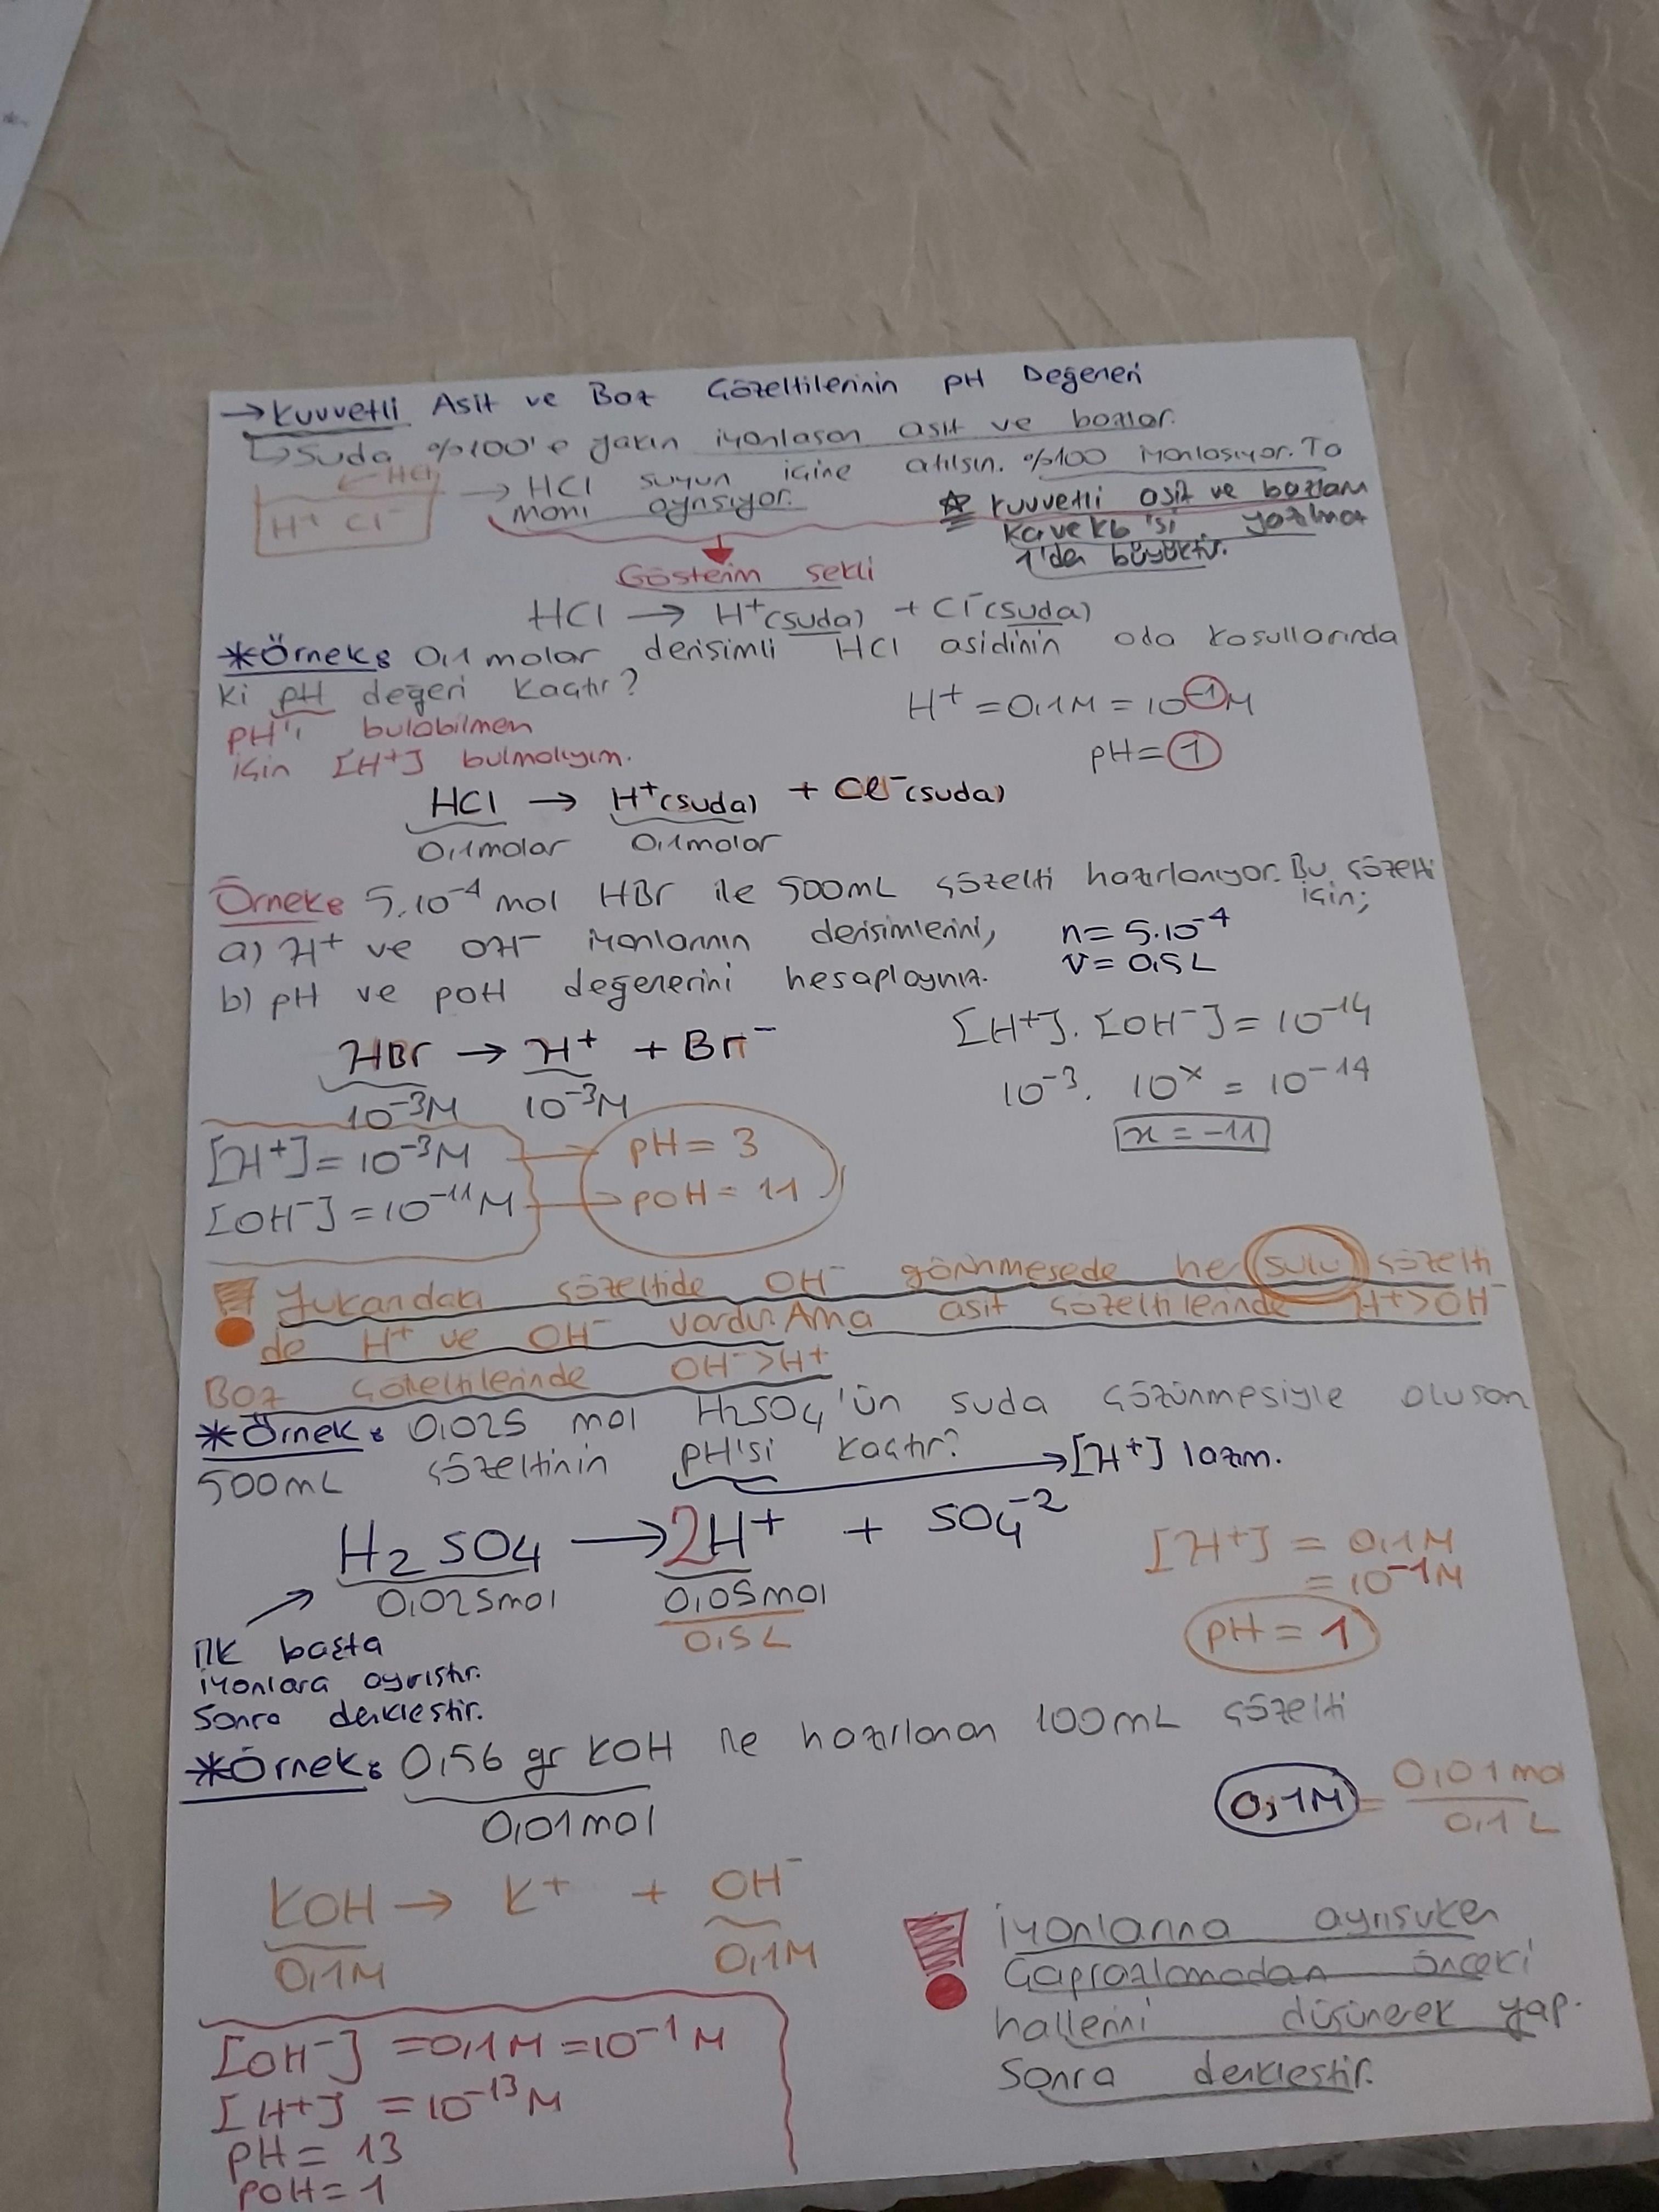 → Kuvvetli Asit ve Baz Çözeltilerinin pH Değerleri
↳ Suda %100'e yakın iyonlaşan asit ve bazlar.
HCl
H+ Cl-
→ HCl suyun içine atılsın. %100 iyonlaşıyor. Ta
mamı ayrışıyor.
☆ Kuvvetli asit ve bazların
Ka ve Kb'si yazılmaz
1'den büyüktür.
Gösterim şekli
HCl → H+(suda) + Cl-(suda)
*Örnek: 0,1 molar derişimli HCl asidinin oda koşullarında
ki pH değeri kaçtır?
H+ = 0,1M = 10-1 M
pH'ı bulabilmen
için [H+] bulmalıyım.
pH = 1
HCl → H+(suda) + Cl-(suda)
0,1molar 0,1molar
Örnek: 5.10-4 mol HBr ile 500mL çözelti hazırlanıyor. Bu çözelti
için;
a) H+ ve OH- iyonlarının derişimlerini,
n = 5.10-4
V = 0,5L
b) pH ve pOH değerlerini hesaplayınız.
[H+].[OH-] = 10-14
HBr → H+ + Br-
10-3. 10x = 10-14
10-3M 10-3M
x = -11
[H+] = 10-3M pH = 3
[OH-] = 10-11M pOH = 11
! Yukarıdaki çözeltide OH- görünmesede her sulu çözelti
de H+ ve OH- vardır. Ama asit çözeltilerinde H+>OH-
Baz çözeltilerinde OH->H+
*Örnek: 0,025 mol H2SO4'ün suda çözünmesiyle oluşan
500mL çözeltinin pH'si kaçtır? → [H+] lazım.
H2SO4 → 2H+ + SO4-2
0,025mol 0,05mol
0,5L
[H+] = 0,1M
= 10-1M
pH = 1
İlk başta
iyonlara ayrıştır.
Sonra denkleştir.
*Örnek: 0,56 gr KOH ile hazırlanan 100mL çözelti
0,01mol
0,1M = 0,01mol
0,1L
KOH → K+ + OH-
0,1M 0,1M
! İyonlarına ayrışırken
Çaprazlamadan önceki
hallerini düşünerek yap.
Sonra denkleştir.
[OH-] = 0,1M = 10-1 M
[H+] = 10-13 M
pH = 13
pOH = 1